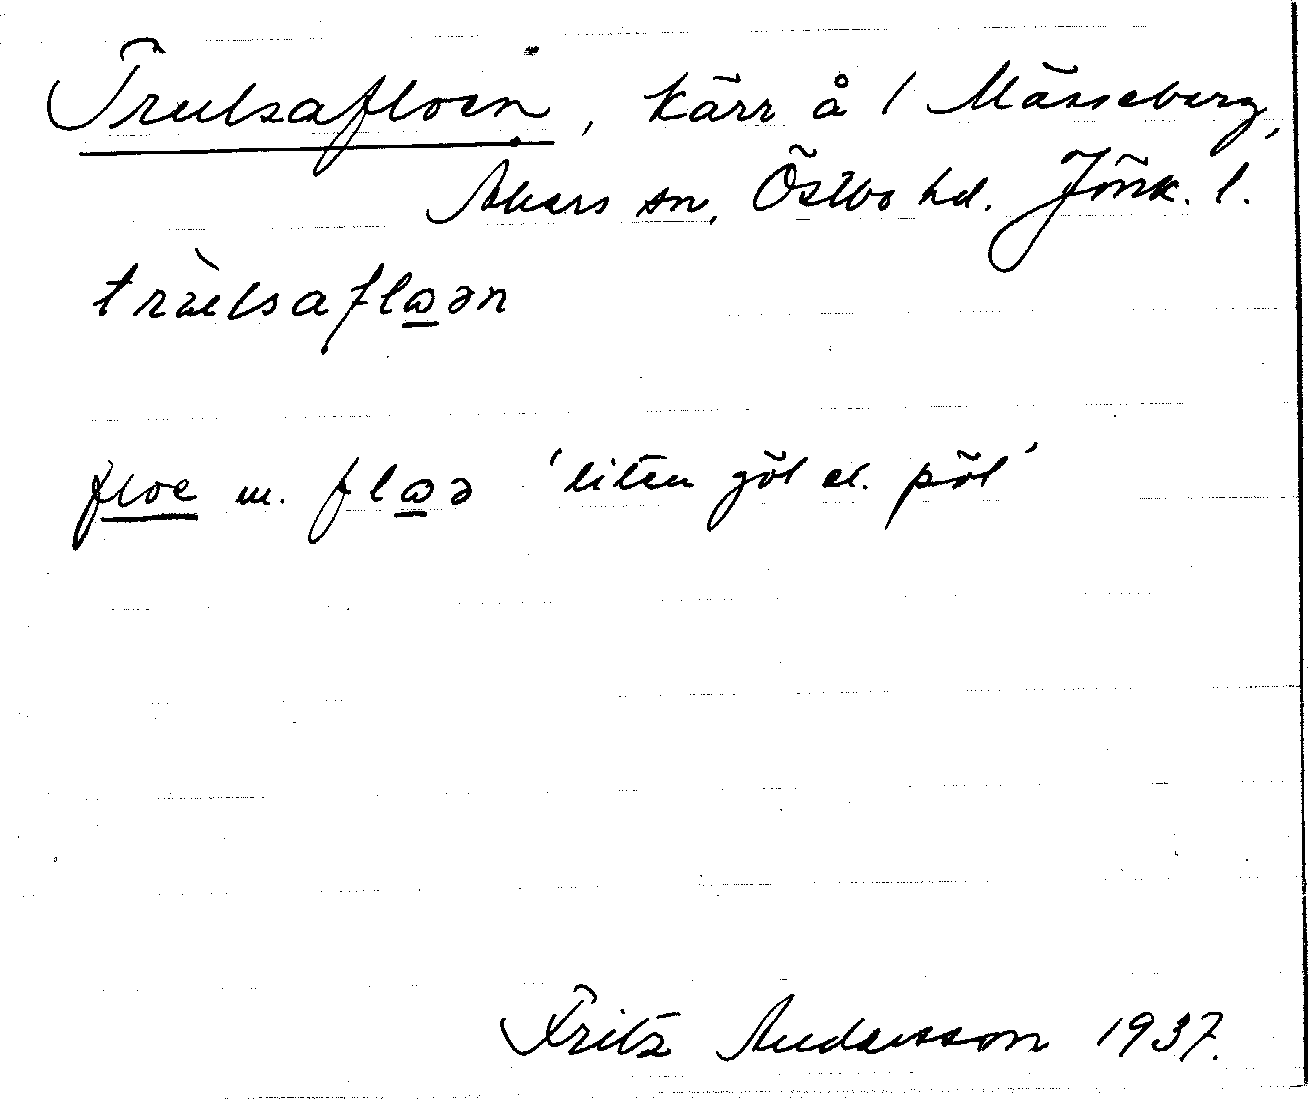 Trulsafloen, kärr å / Mässeberg,
Akers sn, Östbo hd. Jönk. l.
träelsaflꞷən
floe m. flꞷə 'liten göl el. pöl'
Fritz Andersson 1937.